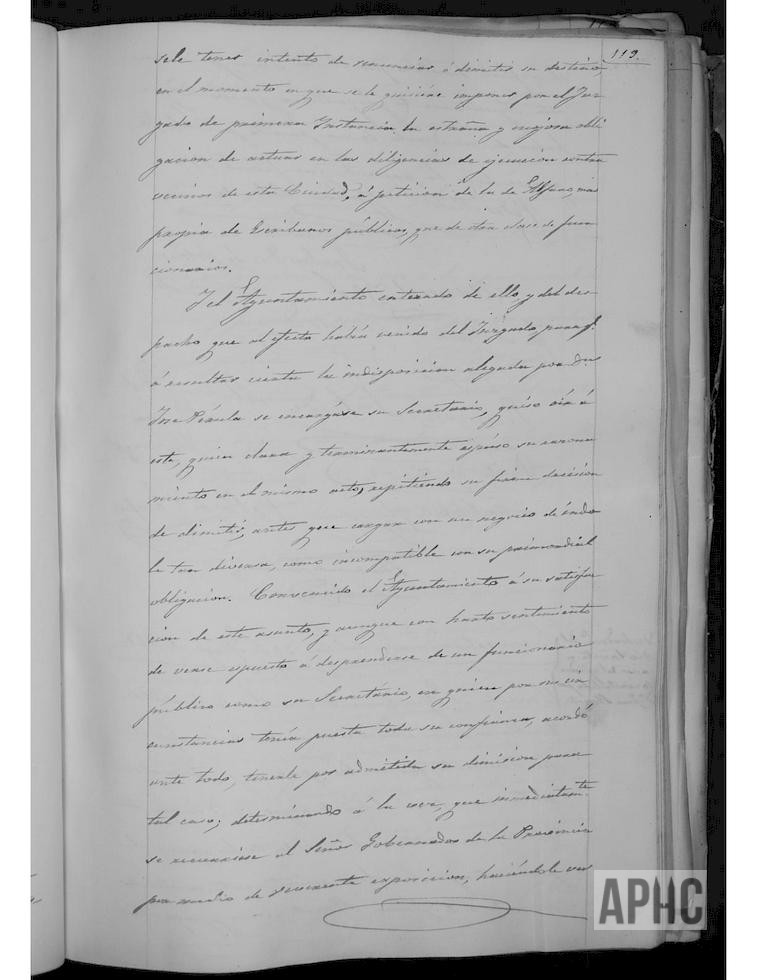 119.
sele tener intento de renunciar ó dimitir su destino,
en el momento en que se le quisiere imponer por el Juz-
gado de primera Instancia la estraña y enojosa obli
gacion de actuar en las diligencias de ejecucion contra
vecinos de esta Ciudad, á peticion de la de mas
propia de Escribanos públicos, que de otra clase de fun
cionarios.
Y el Ayuntamiento enterado de ello y del des-
pacho que al efecto habia venido del Juzgado para q.
á resultar cierta la indisposicion alegada por Dn
Jose se encargase su Secretario, quiso oir á
este, quien clara y terminantemente espuso su razona
miento en el mismo acto, repitiendo su firme decision
de dimitir, antes que cargar con un negocio de índo
le tan diversa, como incompatible con su primordial
obligacion. Convencido el Ayuntamiento á su satisfac
cion de este asunto, y aunque con harto sentimiento
de verse espuesto á desprenderse de un funcionario
público como su Secretario, en quien por sus cir
cunstancias tenía puesta toda su confianza, acordó
ante todo, tenerle por admitida su dimision para
tal caso; determinando á la vez, que inmediatamte
se recurriese al Señor Gobernador de la Provincia
por medio de reverente exposicion, haciéndole ver
APHC